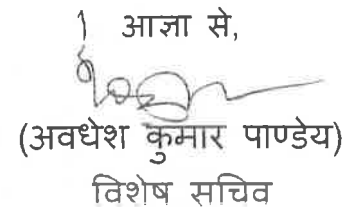 आज्ञा से,
(अवधेश कुमार पाण्डेय)
विशेष सचिव